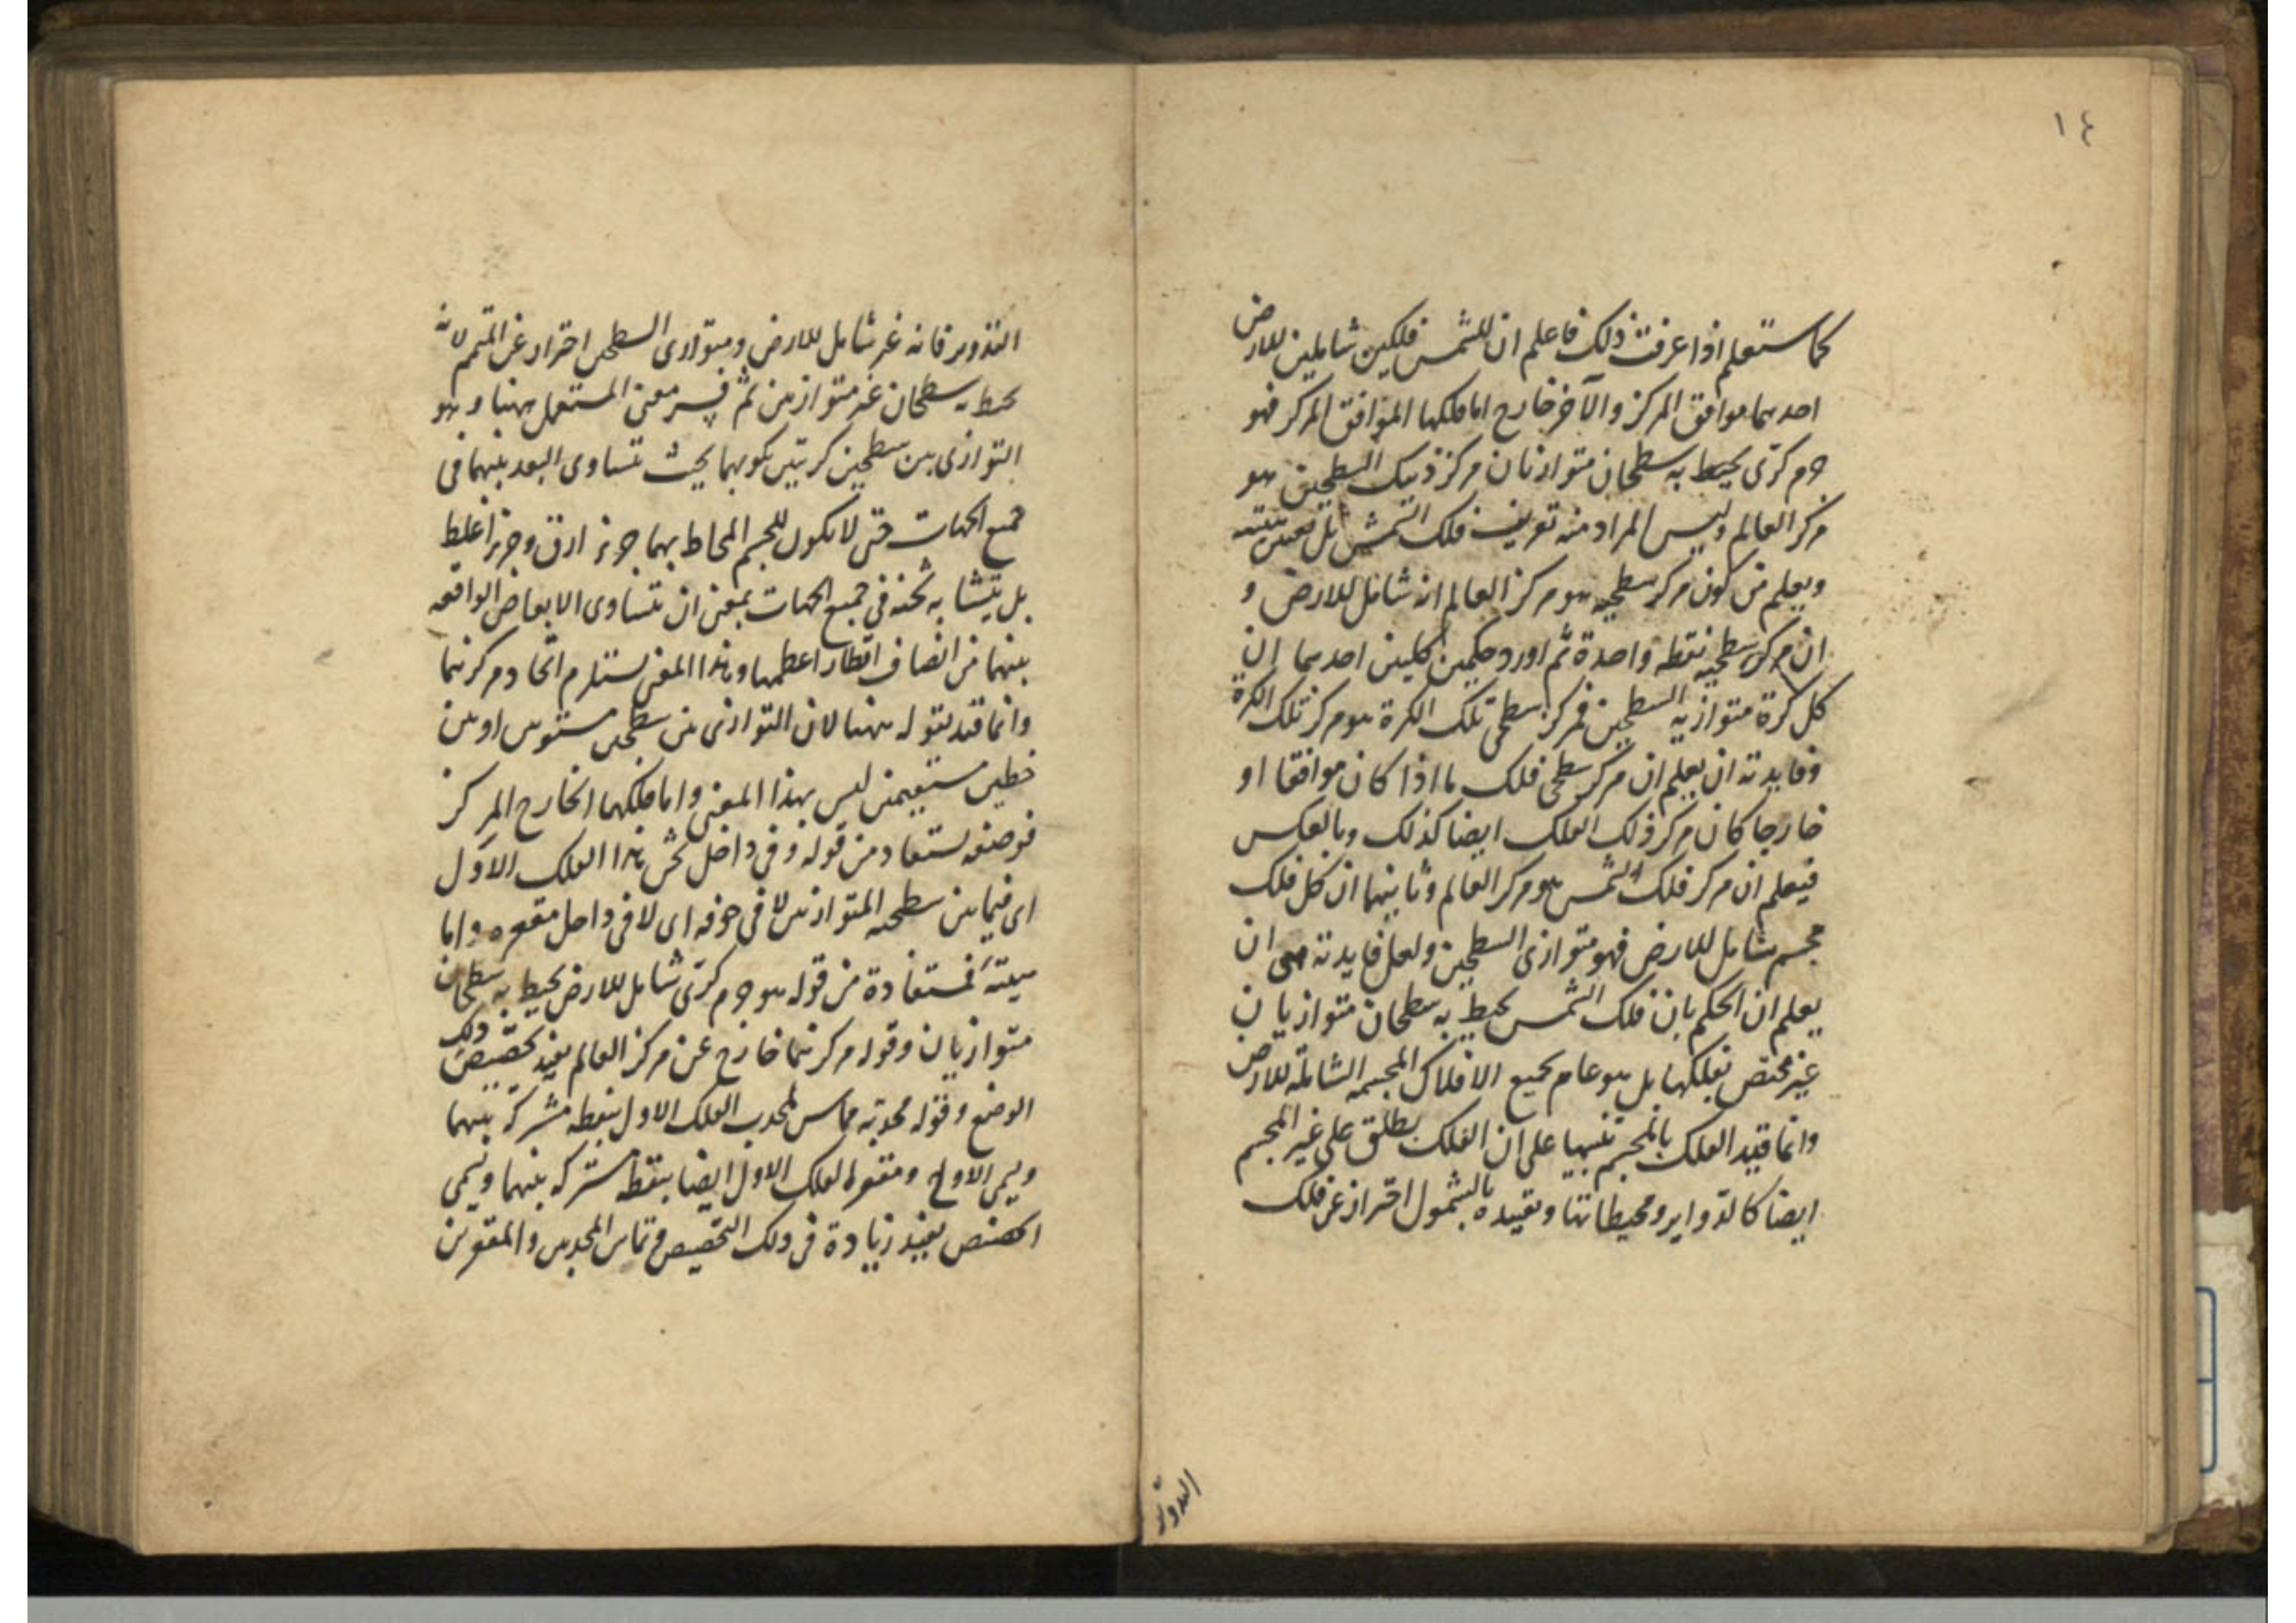 ١٤
كما ستعلم اذا عرفت ذلك فاعلم ان للشمس فلكين شاملين للارض
احدهما موافق المركز والآخر خارج اما فلكها الموافق المركز فهو
جرم كرى يحيط به سطحان متوازيان مركز ذينك السطحين هو
مركز العالم وليس المراد منه تعريف فلك الشمس بل تعيين هيئته
ويعلم من كون مركز سطحيه هو مركز العالم انه شامل للارض و
ان مركز سطحيه نقطة واحدة ثم اورد حكمين كليين احدهما ان
كل كرة متوازية السطحين فمركز سطحى تلك الكرة هو مركز تلك الكرة
وفايدته ان يعلم ان مركز سطحى فلك ما اذا كان موافقا او
خارجا كان مركز ذلك الفلك ايضا كذلك وبالعكس
فيعلم ان مركز فلك الشمس هو مركز العالم وثانيهما ان كل فلك
مجسم شامل للارض فهو متوازى السطحين ولعل فايدته هى ان
يعلم ان الحكم بان فلك الشمس يحيط به سطحان متوازيان
غير مختص بفلكها بل هو عام لجميع الافلاك المجسمه الشاملة للارض
وانما قيد الفلك بالمجسم تنبيها على ان الفلك يطلق على غير المجسم
ايضا كالدواير ومحيطاتها وتقييده بالشمول احتراز عن فلك
التدوير
التدوير فانه غير شامل للارض وبمتوازى السطحين احتراز عن المتمم لانه
يحيط به سطحان غير متوازيين ثم فسر معنى المستعمل ههنا وهو
التوازى بين سطحين كريتين بكونهما بحيث تتساوى البعد بينهما فى
جميع الجهات حتى لا يكون للجسم المحاط بهما جزء ارق وجزء اغلظ
بل يتشابه ثخنه فى جميع الجهات بمعنى ان تتساوى الابعاض الواقعه
بينهما من انصاف اقطار اعظمهما وهذا المعنى يستلزم اتحاد مركزيهما
وانما قيد بقوله ههنا لان التوازى بين سطحين مستويين او بين
خطين مستقيمين ليس بهذا المعنى واما فلكها الخارج المركز
فوصفه يستفاد من قوله وفى داخل ثخن هذا الفلك الاول
اى فيما بين سطحيه المتوازيين لا فى جوفه اى لا فى داخل مقعره واما
هيئته فمستفادة من قوله هو جرم كرى شامل للارض يحيط به سطحان
متوازيان وقوله مركزهما خارج عن مركز العالم يفيد تخصيص ذلك
الوضع وقوله محدبه مماس لمحدب الفلك الاول بنقطه مشتركة بينهما
ويسمى الاوج ومقعره لمقعر الفلك الاول ايضا بنقطه مشتركة بينهما ويسمى
الحضيض يفيد زيادة فى ذلك التخصيص وتماس المحدبين والمقعرين